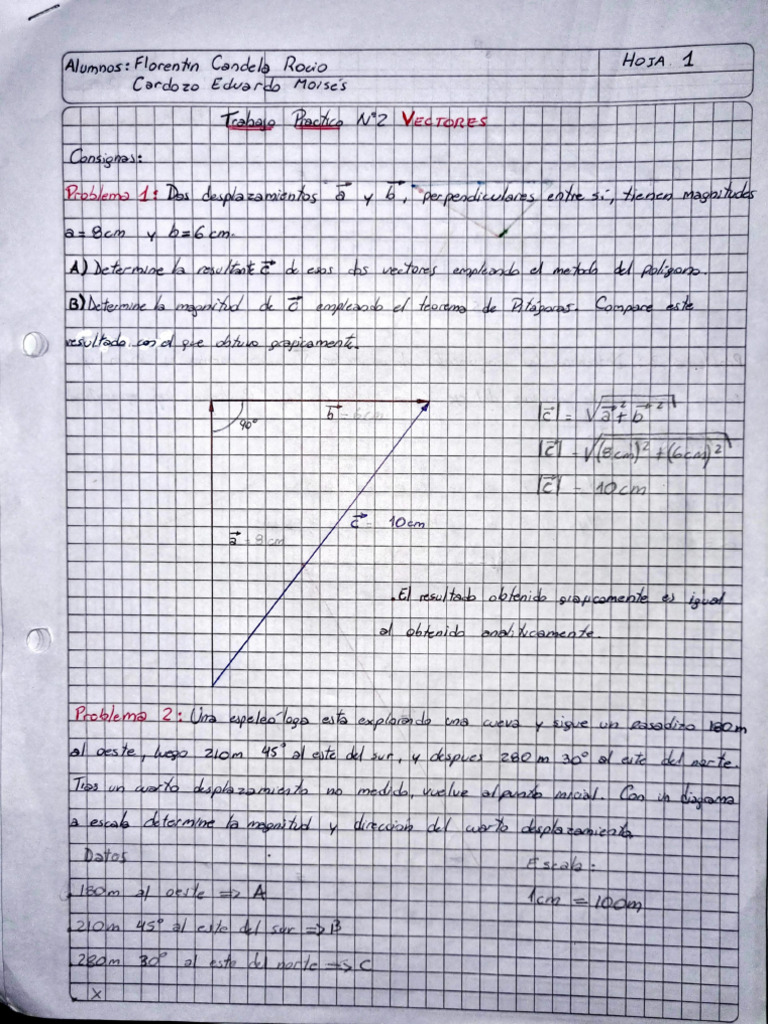 Alumnos: Florentin Candela Rocio
HOJA 1
Cardozo Eduardo Moisés
Trabajo Practico N°2 VECTORES
Consignas:
Problema 1: Dos desplazamientos a y b, perpendiculares entre sí, tienen magnitudes
a=8cm y b=6cm.
A) Determine la resultante c de esos dos vectores empleando el metodo del poligono.
B) Determine la magnitud de c empleando el teorema de Pitágoras. Compare este
resultado con el que obtuvo graficamente.
b = 6cm
90°
|c| = √a² + b²
|c| = √(8cm)² + (6cm)²
|c| = 10cm
c = 10cm
a = 8cm
.El resultado obtenido graficamente es igual
al obtenido analiticamente.
Problema 2: Una espeleóloga esta explorando una cueva y sigue un pasadizo 180m
al oeste, luego 210m 45° al este del sur, y despues 280m 30° al este del norte.
Tras un cuarto desplazamiento no medido, vuelve al punto inicial. Con un diagrama
a escala determine la magnitud y dirección del cuarto desplazamiento.
Datos
Escala:
.180m al oeste => A
1cm = 100m
.210m 45° al este del sur => B
.280m 30° al este del norte => C
. X